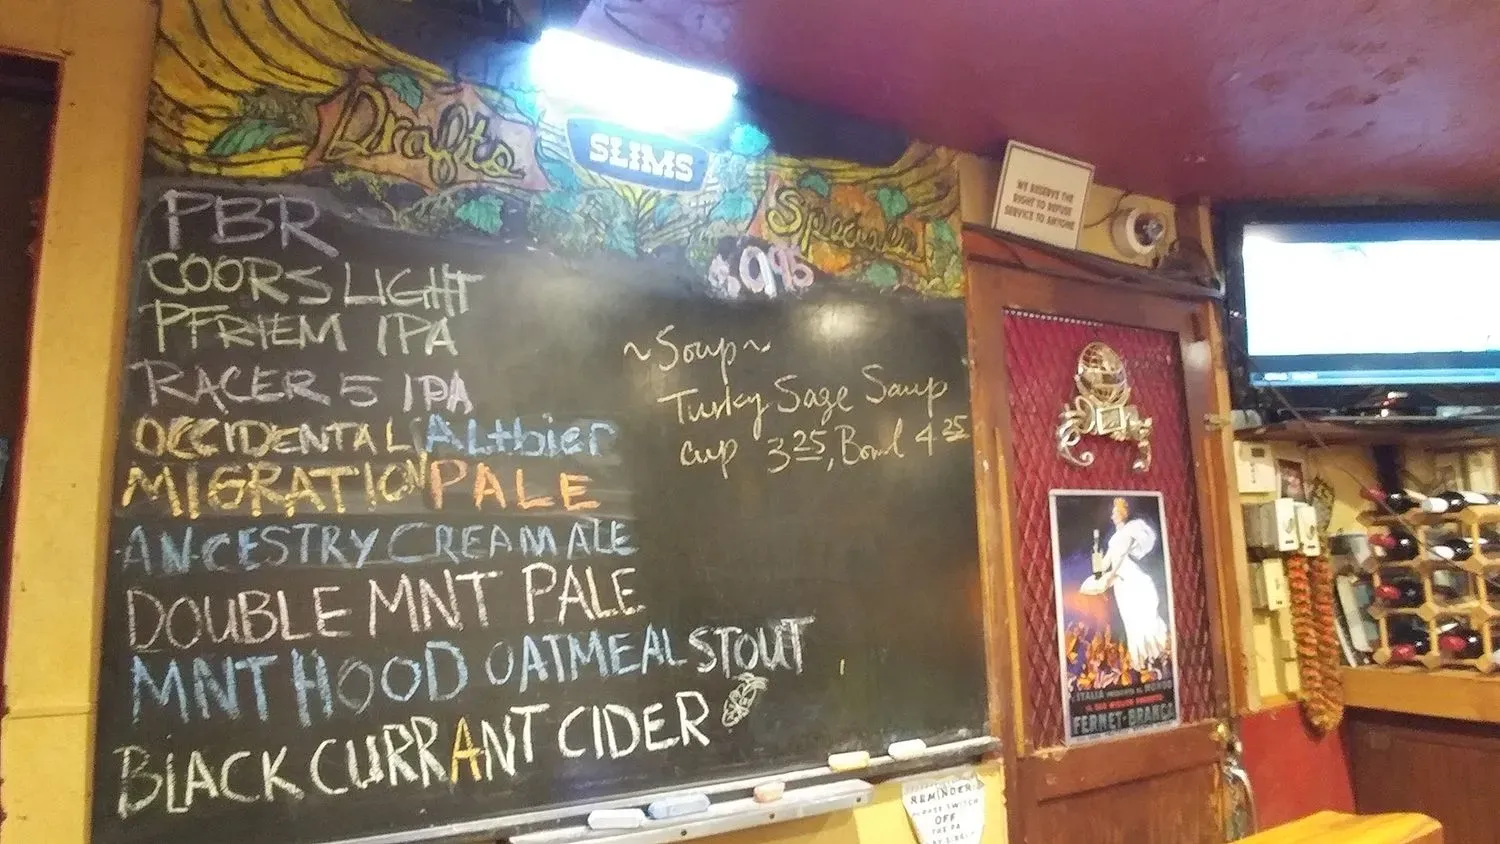 Drafts
SLIMS
Specials
$0.95
PBR
COORS LIGHT
PFRIEM IPA
RACER 5 IPA
OCCIDENTAL Altbier
MIGRATION PALE
ANCESTRY CREAM ALE
DOUBLE MNT PALE
MNT HOOD OATMEAL STOUT
BLACK CURRANT CIDER
~Soup~
Turky Sage Soup
cup 3.25, Bowl 4.25
WE RESERVE THE
RIGHT TO REFUSE
SERVICE TO ANYONE
L'ITALIA
MONDO
FERNET-BRANCA
REMINDER
PLEASE SWITCH
OFF
THE PA